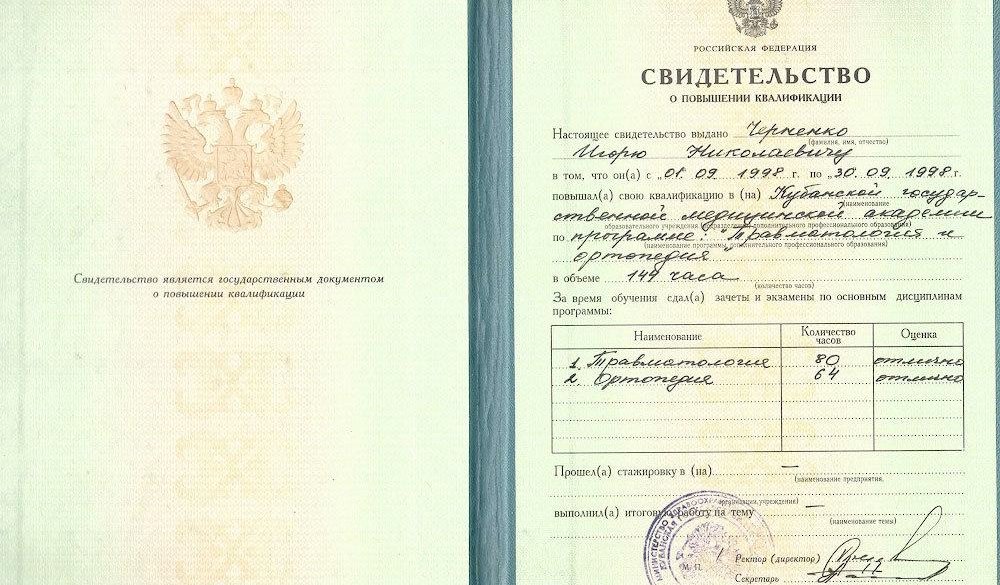 Свидетельство является государственным документом
о повышении квалификации
РОССИЙСКАЯ ФЕДЕРАЦИЯ
СВИДЕТЕЛЬСТВО
О ПОВЫШЕНИИ КВАЛИФИКАЦИИ
Настоящее свидетельство выдано Черненко
(фамилия, имя, отчество)
Игорю Николаевичу
в том, что он(а) с „01“ 09 1998 г. по „30“ 09 1998 г.
повышал(а) свою квалификацию в (на) Кубанской государ-
(наименование
ственной медицинской академии
образовательного учреждения (подразделения) дополнительного профессионального образования)
по программе: "Травматология и
(наименование программы дополнительного профессионального образования)
ортопедия"
в объеме 144 часа
(количество часов)
За время обучения сдал(а) зачеты и экзамены по основным дисциплинам
программы:
Наименование Количество часов Оценка
1. Травматология 80 отлично
2. Ортопедия 64 отлично
Прошел(а) стажировку в (на) —
(наименование предприятия,
организации, учреждения)
выполнил(а) итоговую работу на тему —
(наименование темы)
МИНИСТЕРСТВО ЗДРАВООХР
КУБАНСКАЯ
М.П.
Ректор (директор)
Секретарь